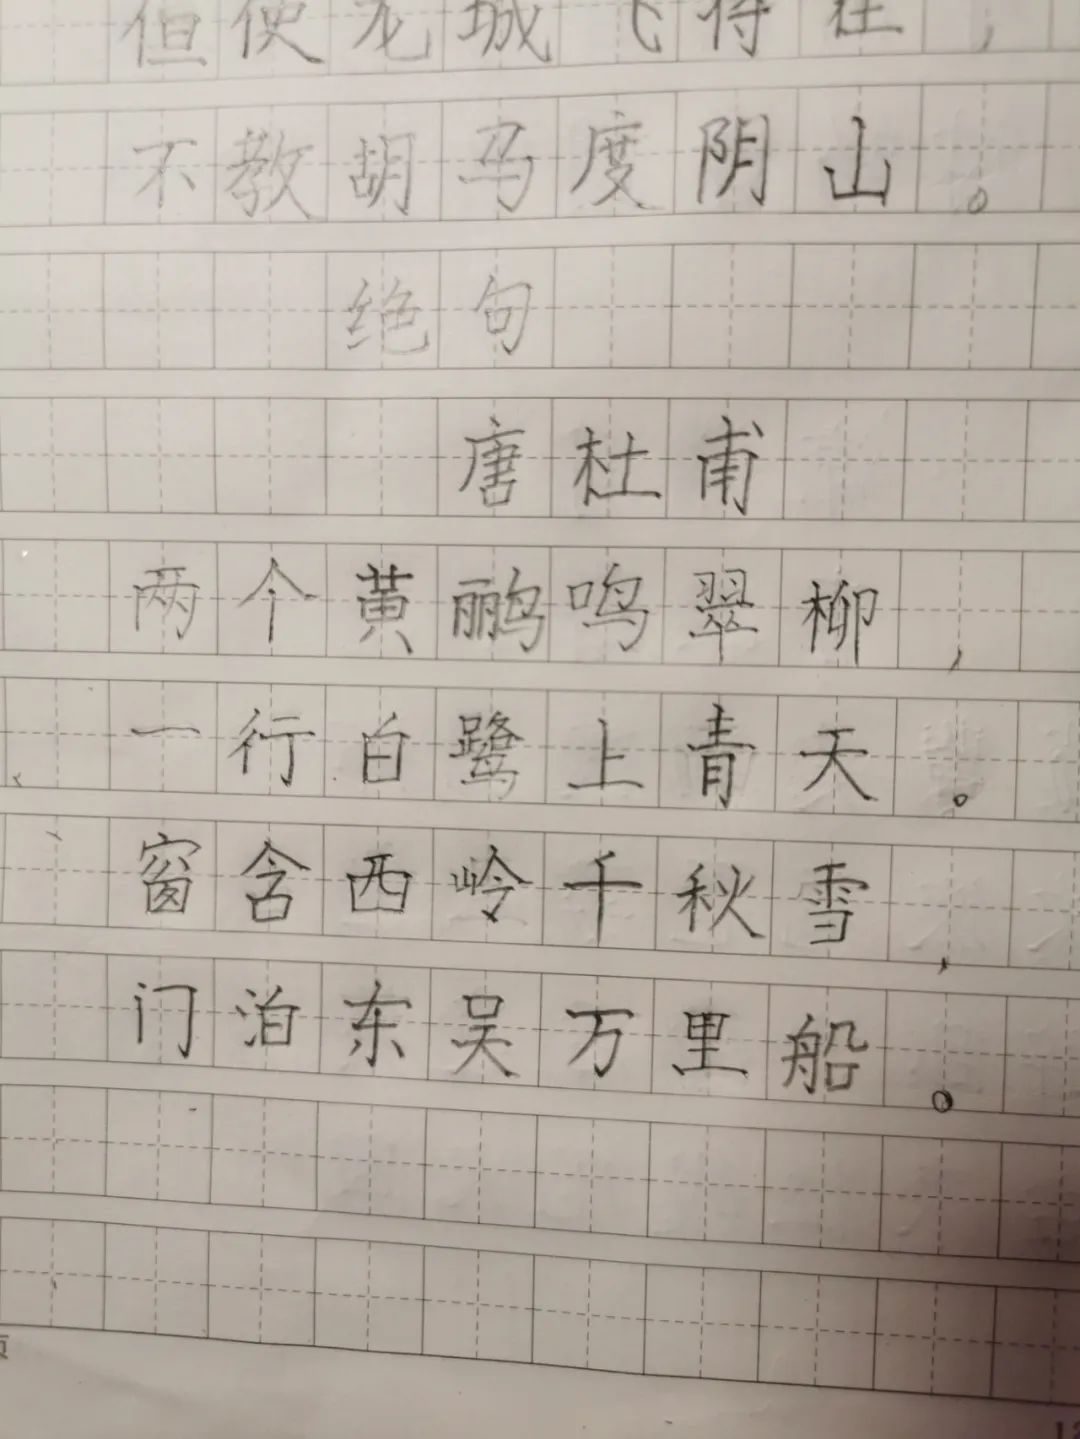 但使龙城飞将在，
不教胡马度阴山。
绝句
唐杜甫
两个黄鹂鸣翠柳，
一行白鹭上青天。
窗含西岭千秋雪，
门泊东吴万里船。